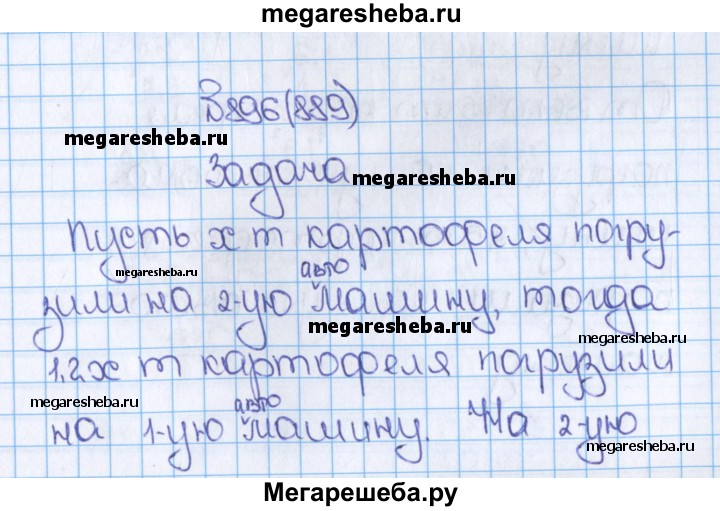 megaresheba.ru
№896(889)
megaresheba.ru
Задача
megaresheba.ru
Пусть x т картофеля погру-
megaresheba.ru
авто
зили на 2-ую машину, тогда
megaresheba.ru
megaresheba.ru
1,2x т картофеля погрузили
megaresheba.ru
авто
на 1-ую машину. На 2-ую
megaresheba.ru
Мегарешеба.ру